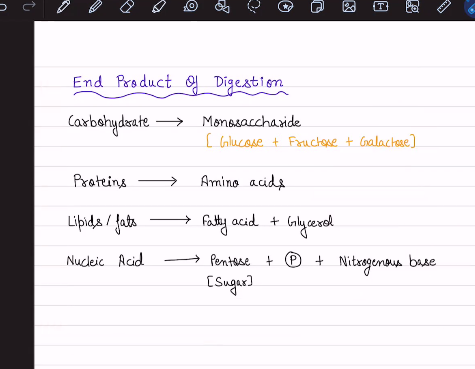 End Product Of Digestion
Carbohydrate → Monosaccharide
[Glucose + Fructose + Galactose]
Proteins → Amino acids
Lipids/fats → Fatty acid + Glycerol
Nucleic Acid → Pentose + Ⓟ + Nitrogenous base
[Sugar]